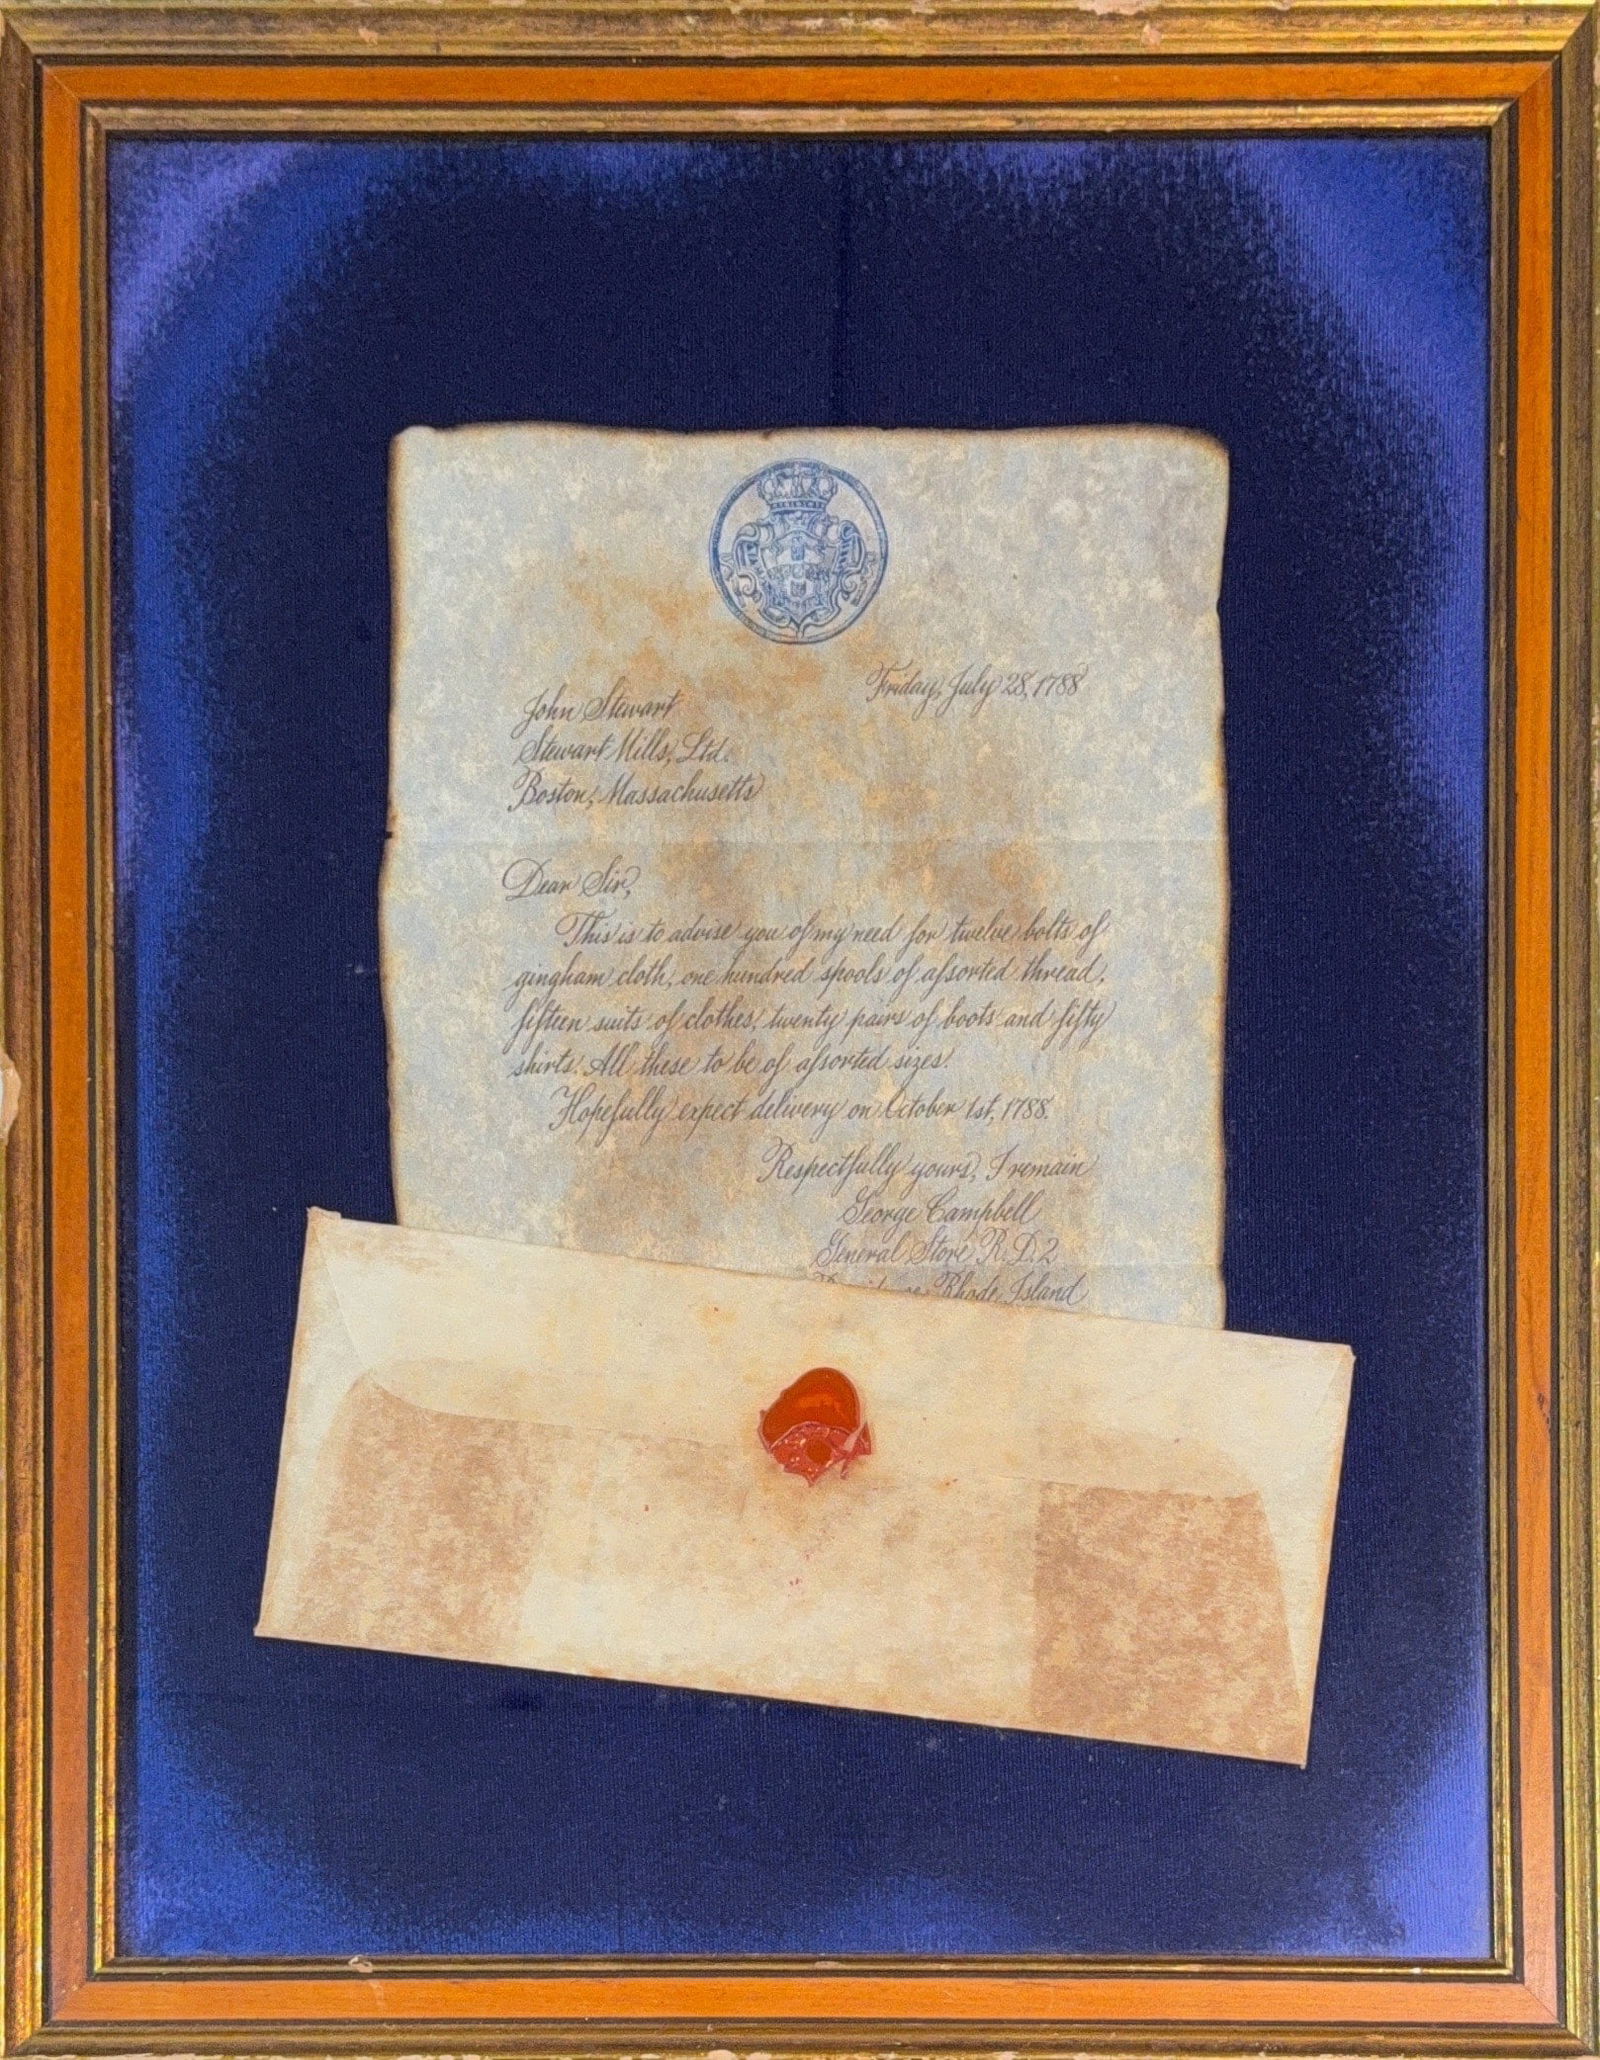 Friday, July 28, 1788
John Stewart
Stewart Mills, Ltd.
Boston, Massachusetts
Dear Sir,
This is to advise you of my need for twelve bolts of
gingham cloth, one hundred spools of aſsorted thread,
fifteen suits of clothes, twenty pairs of boots and fifty
shirts. All these to be of aſsorted sizes.
Hopefully expect delivery on October 1st, 1788.
Respectfully yours, I remain
George Campbell
General Store R.D.2
Rhode Island